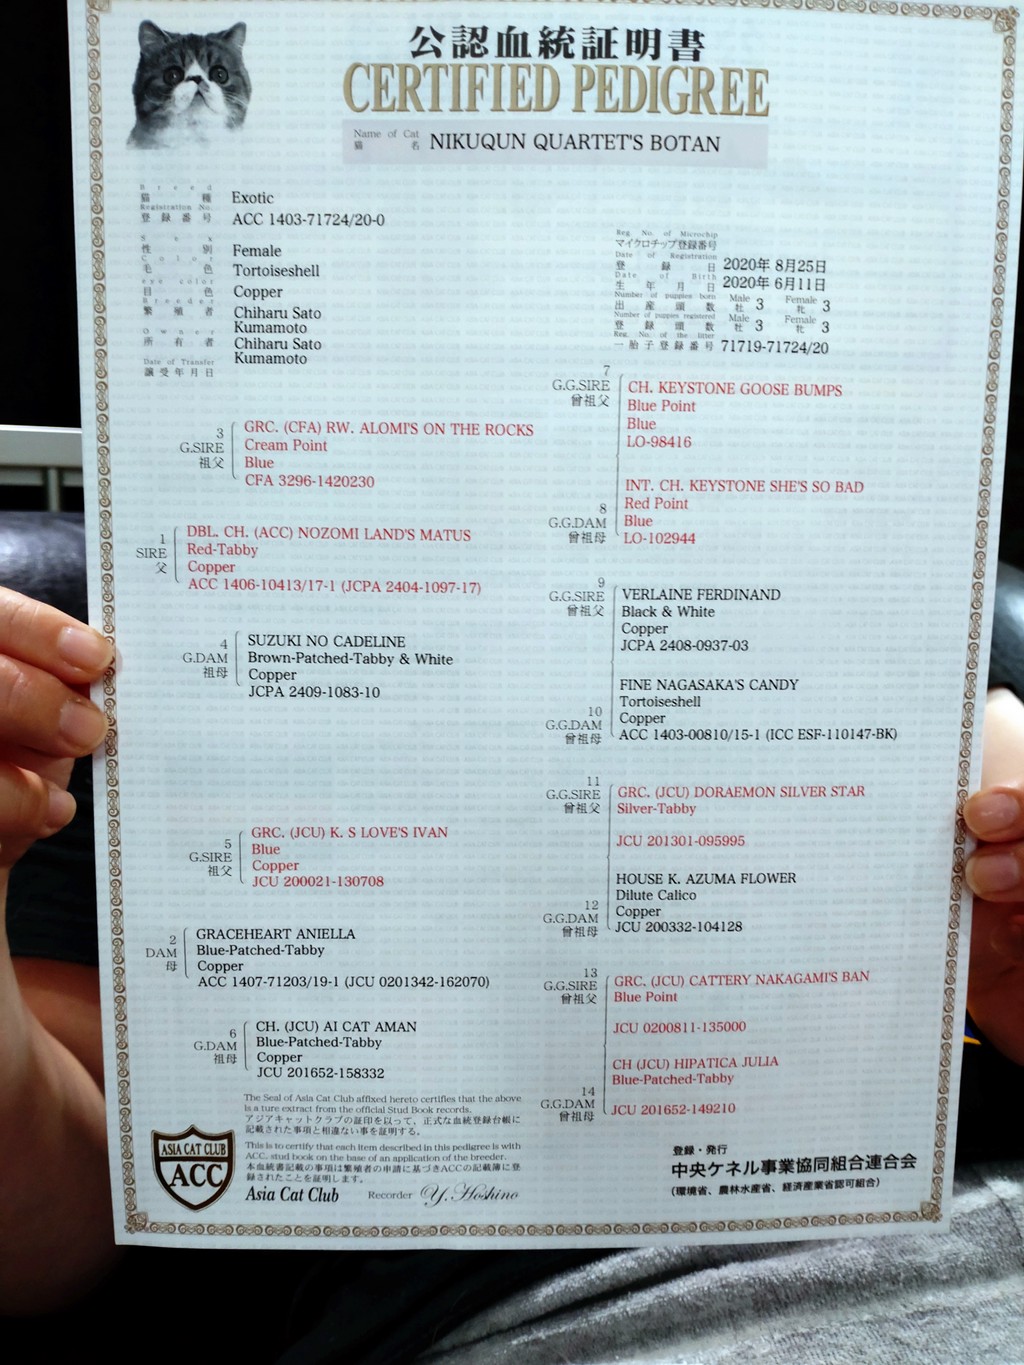 公認血統証明書
CERTIFIED PEDIGREE
Name of Cat
猫名 NIKUQUN QUARTET'S BOTAN
Breed
猫種 Exotic
Registration No.
登録番号 ACC 1403-71724/20-0
Sex
性別 Female
Color
毛色 Tortoiseshell
eye color
目色 Copper
Breeder
繁殖者 Chiharu Sato
Kumamoto
Owner
所有者 Chiharu Sato
Kumamoto
Date of Transfer
譲受年月日
Reg. No. of Microchip
マイクロチップ登録番号
Date of Registration
登録日 2020年 8月25日
Date of Birth
生年月日 2020年 6月11日
Number of puppies born
出産頭数 Male 牡 3 Female 牝 3
Number of puppies registered
登録頭数 Male 牡 3 Female 牝 3
Reg. No. of the litter
一胎子登録番号 71719-71724/20
3
G.SIRE
祖父
GRC. (CFA) RW. ALOMI'S ON THE ROCKS
Cream Point
Blue
CFA 3296-1420230
1
SIRE
父
DBL. CH. (ACC) NOZOMI LAND'S MATUS
Red-Tabby
Copper
ACC 1406-10413/17-1 (JCPA 2404-1097-17)
4
G.DAM
祖母
SUZUKI NO CADELINE
Brown-Patched-Tabby & White
Copper
JCPA 2409-1083-10
5
G.SIRE
祖父
GRC. (JCU) K. S LOVE'S IVAN
Blue
Copper
JCU 200021-130708
2
DAM
母
GRACEHEART ANIELLA
Blue-Patched-Tabby
Copper
ACC 1407-71203/19-1 (JCU 0201342-162070)
6
G.DAM
祖母
CH. (JCU) AI CAT AMAN
Blue-Patched-Tabby
Copper
JCU 201652-158332
7
G.G.SIRE
曾祖父
CH. KEYSTONE GOOSE BUMPS
Blue Point
Blue
LO-98416
8
G.G.DAM
曾祖母
INT. CH. KEYSTONE SHE'S SO BAD
Red Point
Blue
LO-102944
9
G.G.SIRE
曾祖父
VERLAINE FERDINAND
Black & White
Copper
JCPA 2408-0937-03
10
G.G.DAM
曾祖母
FINE NAGASAKA'S CANDY
Tortoiseshell
Copper
ACC 1403-00810/15-1 (ICC ESF-110147-BK)
11
G.G.SIRE
曾祖父
GRC. (JCU) DORAEMON SILVER STAR
Silver-Tabby
JCU 201301-095995
12
G.G.DAM
曾祖母
HOUSE K. AZUMA FLOWER
Dilute Calico
Copper
JCU 200332-104128
13
G.G.SIRE
曾祖父
GRC. (JCU) CATTERY NAKAGAMI'S BAN
Blue Point
JCU 0200811-135000
14
G.G.DAM
曾祖母
CH (JCU) HIPATICA JULIA
Blue-Patched-Tabby
JCU 201652-149210
The Seal of Asia Cat Club affixed hereto certifies that the above
is a ture extract from the official Stud Book records.
アジアキャットクラブの証印を以って、正式な血統登録台帳に
記載された事項と相違ない事を証明する。
This is to certify that each item described in this pedigree is with
ACC. stud book on the base of an application of the breeder.
本血統書記載の事項は繁殖者の申請に基づきACCの記載簿に登
録されたことを証明します。
Asia Cat Club Recorder Y. Hoshino
ASIA CAT CLUB
ACC
登録・発行
中央ケネル事業協同組合連合会
(環境省、農林水産省、経済産業省認可組合)